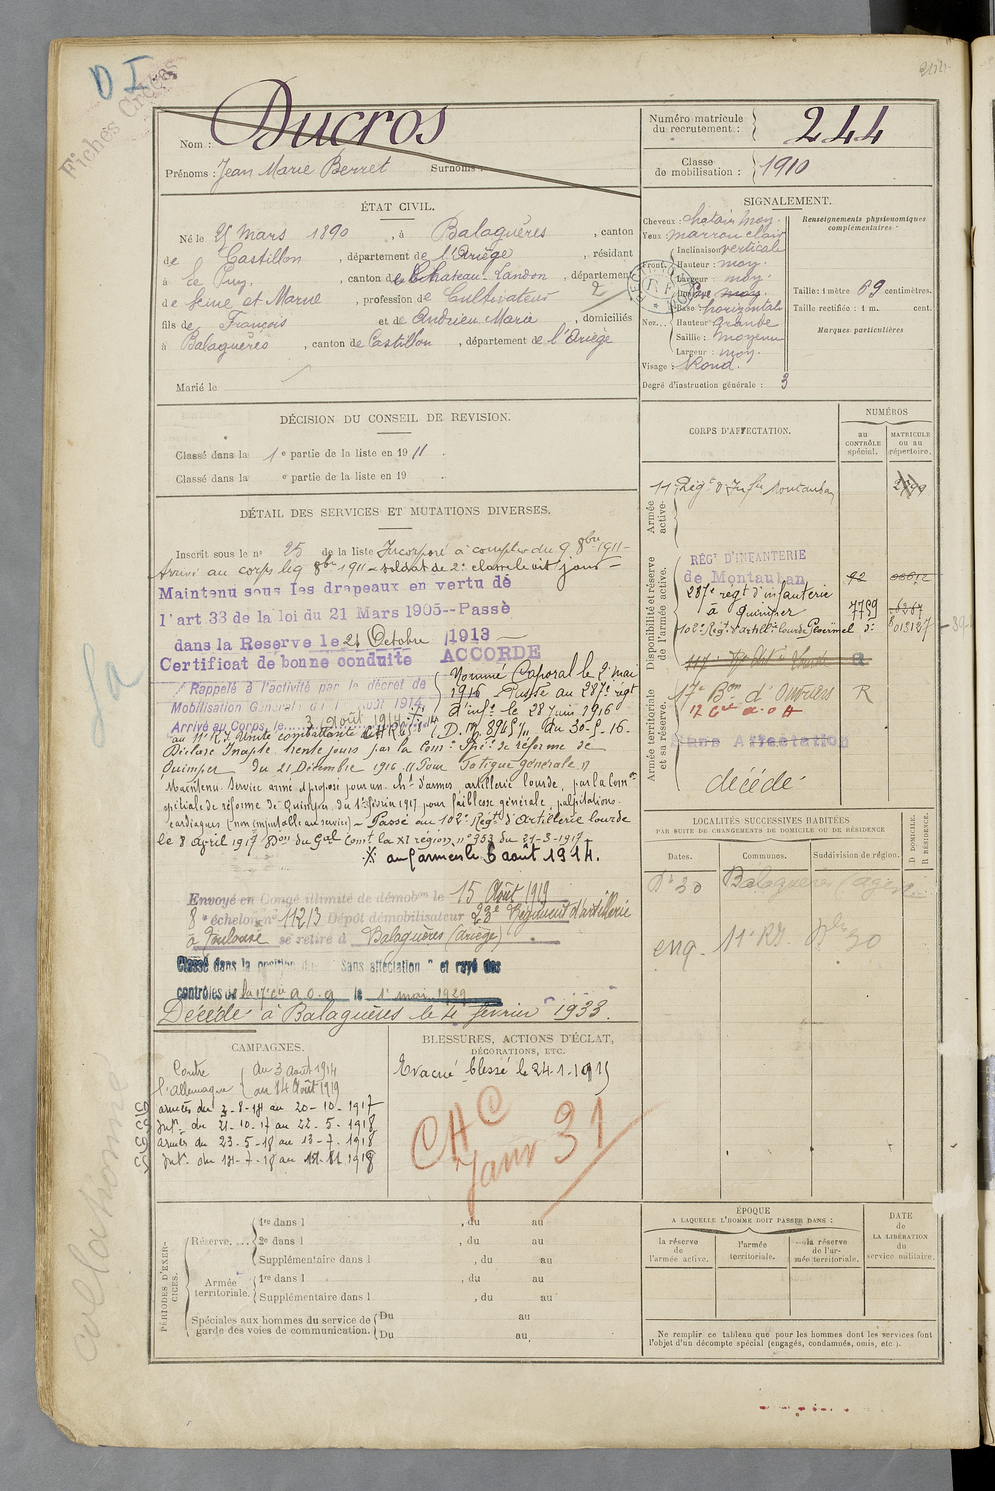 D I
Fiches Créées
244
Nom : Ducros
Prénoms : Jean Marie Berret Surnoms :
Numéro matricule du recrutement : 244
Classe de mobilisation : 1910
ÉTAT CIVIL.
Né le 25 mars 1890, à Balaguères, canton
de Castillon, département de l'Ariège, résidant
à Le Puy, canton de Chateau-Landon, département
de Seine et Marne, profession de Cultivateur
fils de François et de Andrieu Marie, domiciliés
à Balaguères, canton de Castillon, département de l'Ariège
Marié le
SIGNALEMENT.
Cheveux : chatain moy.
Yeux marron clair
Front. Inclinaison verticale
Hauteur : moy.
Largeur : moy.
Nez... Base : horizontale
Hauteur grande
Saillie : moyenne
Largeur : moy.
Visage : Rond.
Degré d'instruction générale : 3
Renseignements physionomiques complémentaires :
Taille : 1 mètre 69 centimètres.
Taille rectifiée : 1 m. cent.
Marques particulières
DÉCISION DU CONSEIL DE REVISION.
Classé dans la 1e partie de la liste en 1911.
Classé dans la e partie de la liste en 19 .
DÉTAIL DES SERVICES ET MUTATIONS DIVERSES.
Inscrit sous le no 25 de la liste Incorporé à compter du 9 8bre 1911 -
Arrivé au corps le 9 8bre 1911 - soldat de 2e classe le dit jour -
Maintenu sous les drapeaux en vertu de
l'art 33 de la loi du 21 Mars 1905--Passé
dans la Réserve le 24 Octobre 1913 -
Certificat de bonne conduite ACCORDÉ
Rappelé à l'activité par le décret de
Mobilisation Générale du 1 août 1914
Arrivé au Corps, le 3 Août 1914
Nommé Caporal le 2 mai
1916 - Passé au 287e regt
d'infie le 28 Juin 1916
au 11e R.I. Unité combattante
Déclaré Inapte trente jours par la Comon Spéle de réforme de
Quimper du 21 Décembre 1916 "Pour fatigue générale"
Maintenu Service armé et proposé pour un cht d'armes, artillerie lourde, par la Comon
spéciale de réforme de Quimper du 1er février 1917 pour faiblesse générale, palpitations
cardiaques (non imputable au service) - Passé au 102e Régt d'Artillerie lourde
le 8 avril 1917 Don du Gal Comt la XI région, no 353 du 21-3-1917
aux armées le 6 août 1914.
Envoyé en Congé illimité de démobon le 15 Août 1919
8e échelon no 11213 Dépôt démobilisateur 23e Régiment d'artillerie
à Toulouse se retire à Balaguères (Ariège)
Classé dans la position dite " Sans affectation " et rayé des
contrôles de la 17e Cie a.o.a le 1er mai 1929
Décédé à Balaguères le 4 février 1933.
CORPS D'AFFECTATION.
NUMÉROS
au CONTRÔLE spécial.
MATRICULE ou au répertoire.
Armée active.
11e Régt d'Infie Montauban
Disponibilité et réserve de l'armée active.
RÉGt D'INFANTERIE
de Montauban
287e regt d'infanterie
à Quimper 7759
102e Régt d'artillie lourde
Armée territoriale et sa réserve.
17e Bon d'Ouvriers R
Sans Affectation
décédé
LOCALITÉS SUCCESSIVES HABITÉES
PAR SUITE DE CHANGEMENTS DE DOMICILE OU DE RÉSIDENCE.
Dates. Communes. Subdivision de région. D DOMICILE. R RÉSIDENCE.
Balaguères
CAMPAGNES.
Contre l'allemagne
du 3 août 1914
au 14 Août 1919
armées du 3-8-14 au 20-10-1917
Intr. du 21-10-17 au 22-5-1918
armées du 23-5-18 au 13-7-1918
Intr. du 14-7-18 au
BLESSURES, ACTIONS D'ÉCLAT, DÉCORATIONS, ETC.
Evacué blessé le 24-1-1915
CHC
Janv 31
collationné
PÉRIODES D'EXERCICES.
Réserve.... 1re dans l , du au
2e dans l , du au
Supplémentaire dans l , du au
Armée territoriale. 1re dans l , du au
Supplémentaire dans l , du au
Spéciales aux hommes du service de garde des voies de communication. Du au
Du au
ÉPOQUE
A LAQUELLE L'HOMME DOIT PASSER DANS :
la réserve de l'armée active.
l'armée territoriale.
la réserve de l'armée territoriale.
DATE de LA LIBÉRATION du service militaire.
Ne remplir ce tableau que pour les hommes dont les services font
l'objet d'un décompte spécial (engagés, condamnés, omis, etc.).